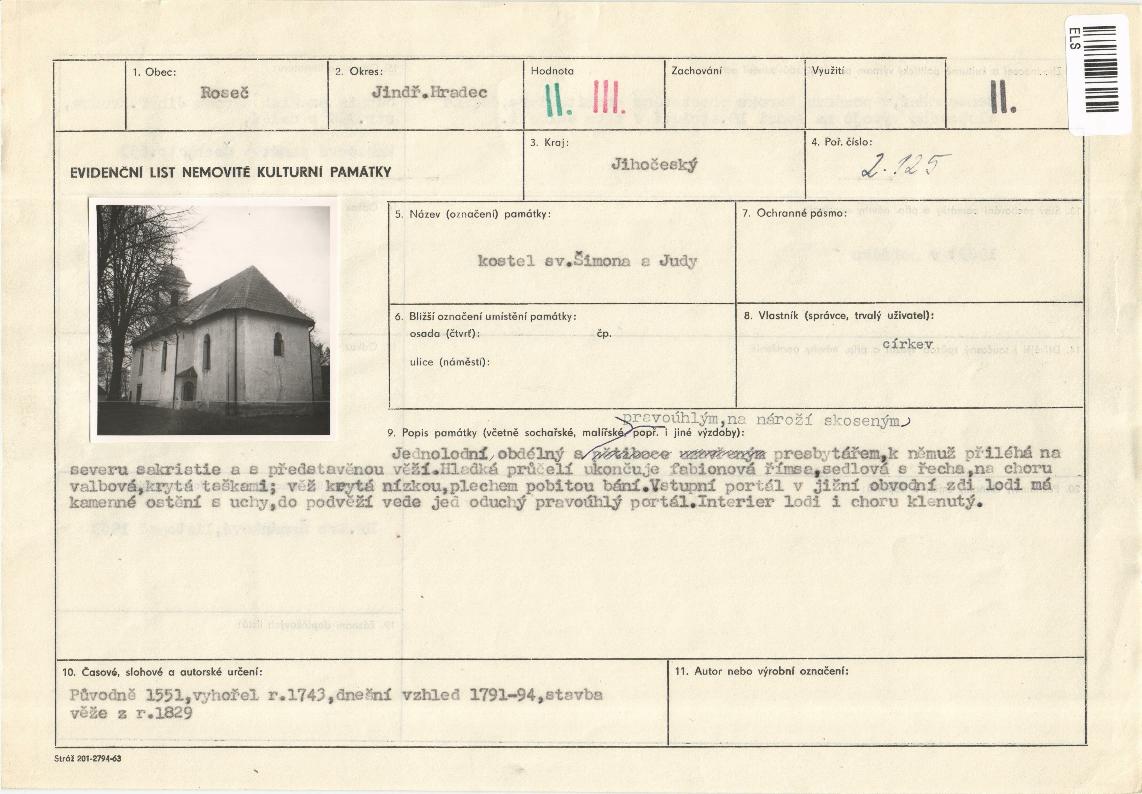 ELS
1. Obec:
Roseč
2. Okres:
Jindř.Hradec
Hodnota
II. III.
Zachování
Využití
II.
EVIDENČNÍ LIST NEMOVITÉ KULTURNÍ PAMÁTKY
3. Kraj:
Jihočeský
4. Poř. číslo:
2.125
5. Název (označení) památky:
kostel sv.Šimona a Judy
7. Ochranné pásmo:
6. Bližší označení umístění památky:
osada (čtvrť): čp.
ulice (náměstí):
8. Vlastník (správce, trvalý uživatel):
církev
pravoúhlým,na nároží skoseným
9. Popis památky (včetně sochařské, malířské, popř. i jiné výzdoby):
Jednolodní,obdélný s presbytářem,k němuž přiléhá na
severu sakristie a s představěnou věží.Hladká průčelí ukončuje fabionová římsa,sedlová s řecha,na choru
valbová,krytá taškami; věž krytá nízkou,plechem pobitou bání.Vstupní portál v jižní obvodní zdi lodi má
kamenné ostění s uchy,do podvěží vede jed oduchý pravoúhlý portál.Interier lodi i choru klenutý.
10. Časové, slohové a autorské určení:
Původně 1551,vyhořel r.1743,dnešní vzhled 1791-94,stavba
věže z r.1829
11. Autor nebo výrobní označení:
Stráž 201-2794-63